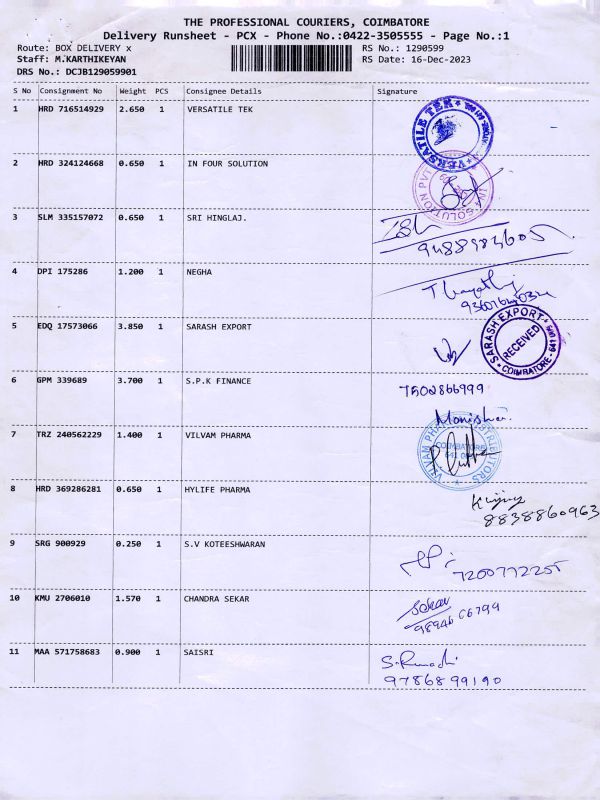 THE PROFESSIONAL COURIERS, COIMBATORE
Delivery Runsheet - PCX - Phone No.:0422-3505555 - Page No.:1
Route: BOX DELIVERY x RS No.: 1290599
Staff: M.KARTHIKEYAN RS Date: 16-Dec-2023
DRS No.: DCJB129059901
S No Consignment No Weight PCS Consignee Details Signature
1 HRD 716514929 2.650 1 VERSATILE TEK
VERSATILE TEK
2 HRD 324124668 0.650 1 IN FOUR SOLUTION
SOLUTION PVT
3 SLM 335157072 0.650 1 SRI HINGLAJ.
4 DPI 175286 1.200 1 NEGHA
5 EDQ 17573066 3.850 1 SARASH EXPORT
SARASH EXPORT
RECEIVED
COIMBATORE
6 GPM 339689 3.700 1 S.P.K FINANCE
7502866999
Monisha.
7 TRZ 240562229 1.400 1 VILVAM PHARMA
COIMBATORE
8 HRD 369286281 0.650 1 HYLIFE PHARMA
8838860963
9 SRG 900929 0.250 1 S.V KOTEESHWARAN
7200772255
10 KMU 2706010 1.570 1 CHANDRA SEKAR
Sekar
98946 66799
11 MAA 571758683 0.900 1 SAISRI
9786899190